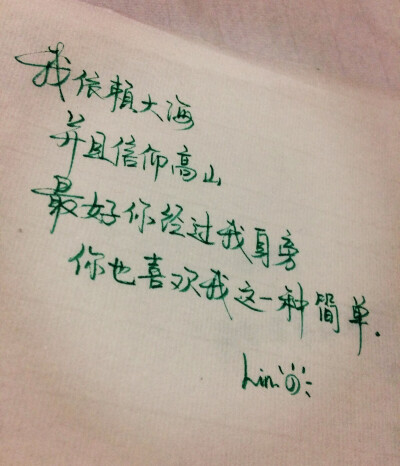 我依賴大海
并且信仰高山
最好你经过我身旁
你也喜欢我这一种简单.
Lin